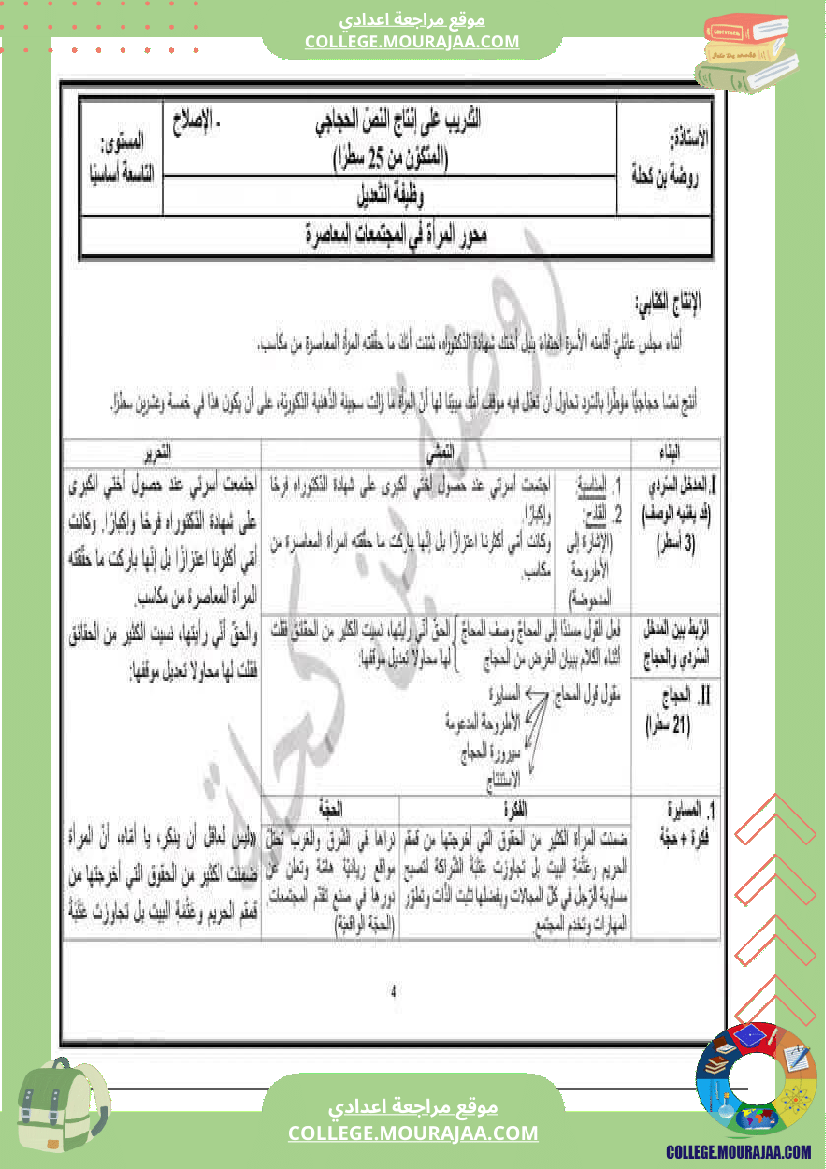 موقع مراجعة اعدادي
COLLEGE.MOURAJAA.COM
الأستاذة:
روضة بن كحلة
التّدريب على إنتاج النصّ الحجاجي - الإصلاح
(المتكوّن من 25 سطرًا)
وظيفة التّعديل
المستوى:
التاسعة أساسيًا
محور المرأة في المجتمعات المعاصرة
الإنتاج الكتابي:
أثناء مجلس عائليّ أقامته الأسرة احتفاءً بنيل أختك شهادة الدّكتوراه، ثمّنت أمّك ما حقّقته المرأة المعاصرة من مكاسب.
أنتج نصّا حجاجيًّا مؤطّرا بالسّرد تحاول أن تعدّل فيه موقف أمّك مبيّنا لها أنّ المرأة ما زالت سجينة الذّهنية الذّكوريّة، على أن يكون هذا في خمسة وعشرين سطرًا.
البناء
التمشّي
التحرير
I. المدخل السّردي
(قد يغنيه الوصف)
(3 أسطر)
1. المناسبة:
2. القادح:
(الإشارة إلى
الأطروحة
المدحوضة)
اجتمعت أسرتي عند حصول أختي الكبرى على شهادة الدكتوراه فرحًا
وإكبارًا.
وكانت أمّي أكثرنا اعتزازًا بل إنّها باركت ما حقّقته امرأة المعاصرة من
مكاسب.
اجتمعت أسرتي عند حصول أختي الكبرى
على شهادة الدّكتوراه فرحًا وإكبارًا. وكانت
أمّي أكثرنا اعتزازًا بل إنّها باركت ما حقّقته
المرأة المعاصرة من مكاسب.
الرّبط بين المدخل
السّردي والحجاج
فعل القول مسندًا إلى المحاجّ وصف المحاجّ
أثناء الكلام ببيان الغرض من الحجاج
الحقّ أنّي رأيتها، نسيت الكثير من الحقائق فقلت
لها محاولا تعديل موقفها:
والحقّ أنّي رأيتها، نسيت الكثير من الحقائق
فقلت لها محاولا تعديل موقفها:
II. الحجاج
(21 سطرا)
مقول قول المحاج
المسايرة
الأطروحة المدعومة
سيرورة الحجاج
الاستنتاج
1. المسايرة
فكرة + حجّة
الفكرة
ضمنت المرأة الكثير من الحقوق التي أخرجتها من قمقم
الحريم وعتمة البيت بل تجاوزت عتبة الشّراكة لتصبح
مساوية للرّجل في كلّ المجالات وبفضلها تثبت الذّات وتطوّر
المهارات وتخدم المجتمع.
الحجّة
نراها في الشّرق والغرب تحتلّ
مواقع رياديّة هامّة وتعلن عن
دورها في صنع تقدّم المجتمعات.
(الحجّة الواقعيّة)
«ليس لعاقل أن ينكر، يا أمّاه، أنّ المرأة
ضمنت الكثير من الحقوق التي أخرجتها من
قمقم الحريم وعتمة البيت بل تجاوزت عتبة
روضة بن كحلة
4
موقع مراجعة اعدادي
COLLEGE.MOURAJAA.COM
COLLEGE.MOURAJAA.COM